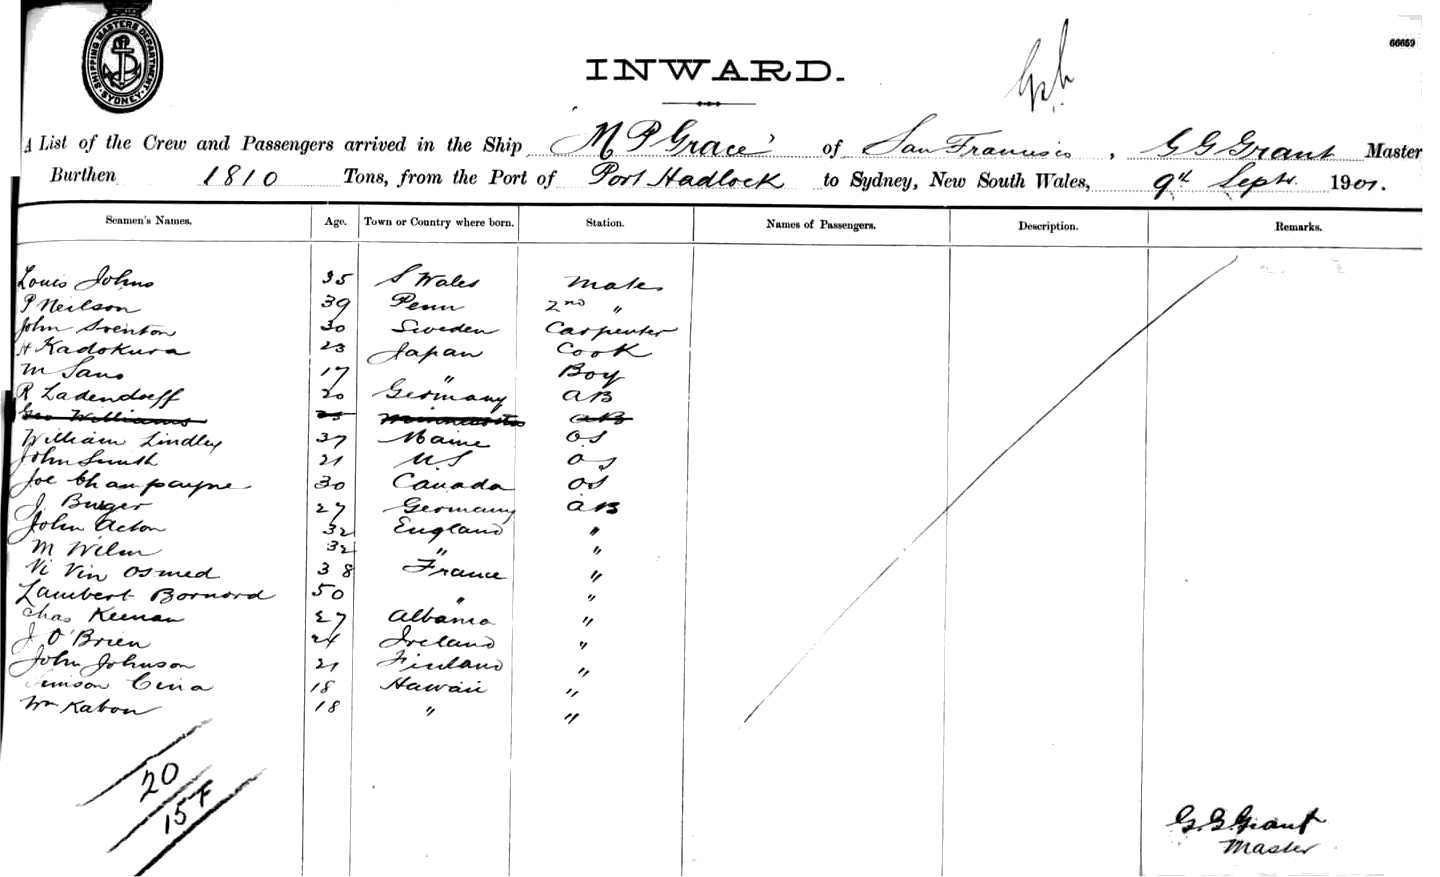 SHIPPING MASTERS DEPARTMENT
SYDNEY
66659
INWARD.
A List of the Crew and Passengers arrived in the Ship M P Grace of San Francisco, G G Grant Master
Burthen 1810 Tons, from the Port of Port Hadlock to Sydney, New South Wales, 9th Septr. 1901.
Seamen's Names. Age. Town or Country where born. Station. Names of Passengers. Description. Remarks.
Louis Johns 35 S Wales Mate
P Neilson 39 Penn 2nd "
John Sventon 30 Sweden Carpenter
H Kadokura 23 Japan Cook
M Sano 17 " Boy
R Ladendorff 20 Germany AB
Geo Williams 25 Minnesota AB
William Lindley 37 Maine OS
John Smith 21 U S OS
Joe Champayne 30 Canada OS
J Burger 27 Germany AB
John Acton 32 England "
M Wilm 32 " "
Vi Vin Osmed 38 France "
Lambert Bornord 50 " "
Chas Keenan 27 Albania "
J O'Brien 24 Ireland "
John Johnson 21 Finland "
Cena 18 Hawaii "
Wm Kabou 18 " "
20
15 F
G. G Grant
Master